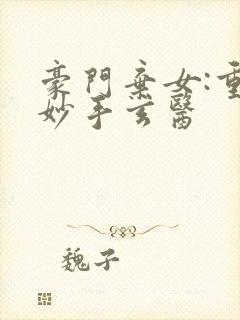 豪門棄女:重
妙手玄醫
魏子